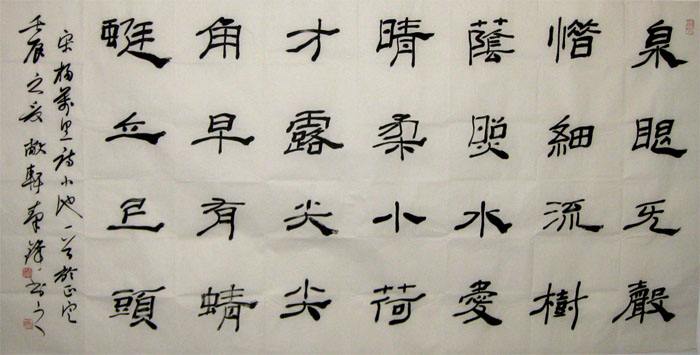 泉眼无聲
惜細流樹
蔭照水愛
晴柔小荷
才露尖尖
角早有蜻
蜓立上頭
宋楊萬里詩小池一首於正定
壬辰之夏